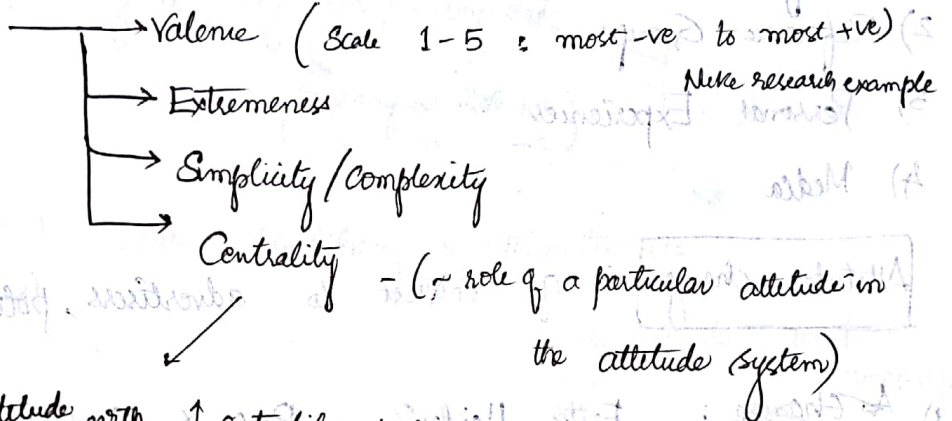 Valence (Scale 1-5 : most -ve to most +ve)
Nike research example
Extremeness
Simplicity / Complexity
Centrality - (~ role of a particular attitude in
the attitude system)
with ↑